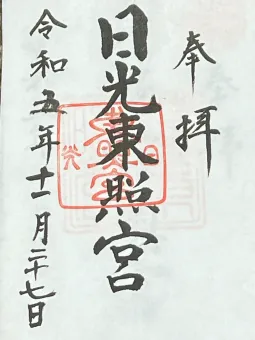 奉拝
日光東照宮
令和五年十一月二十七日